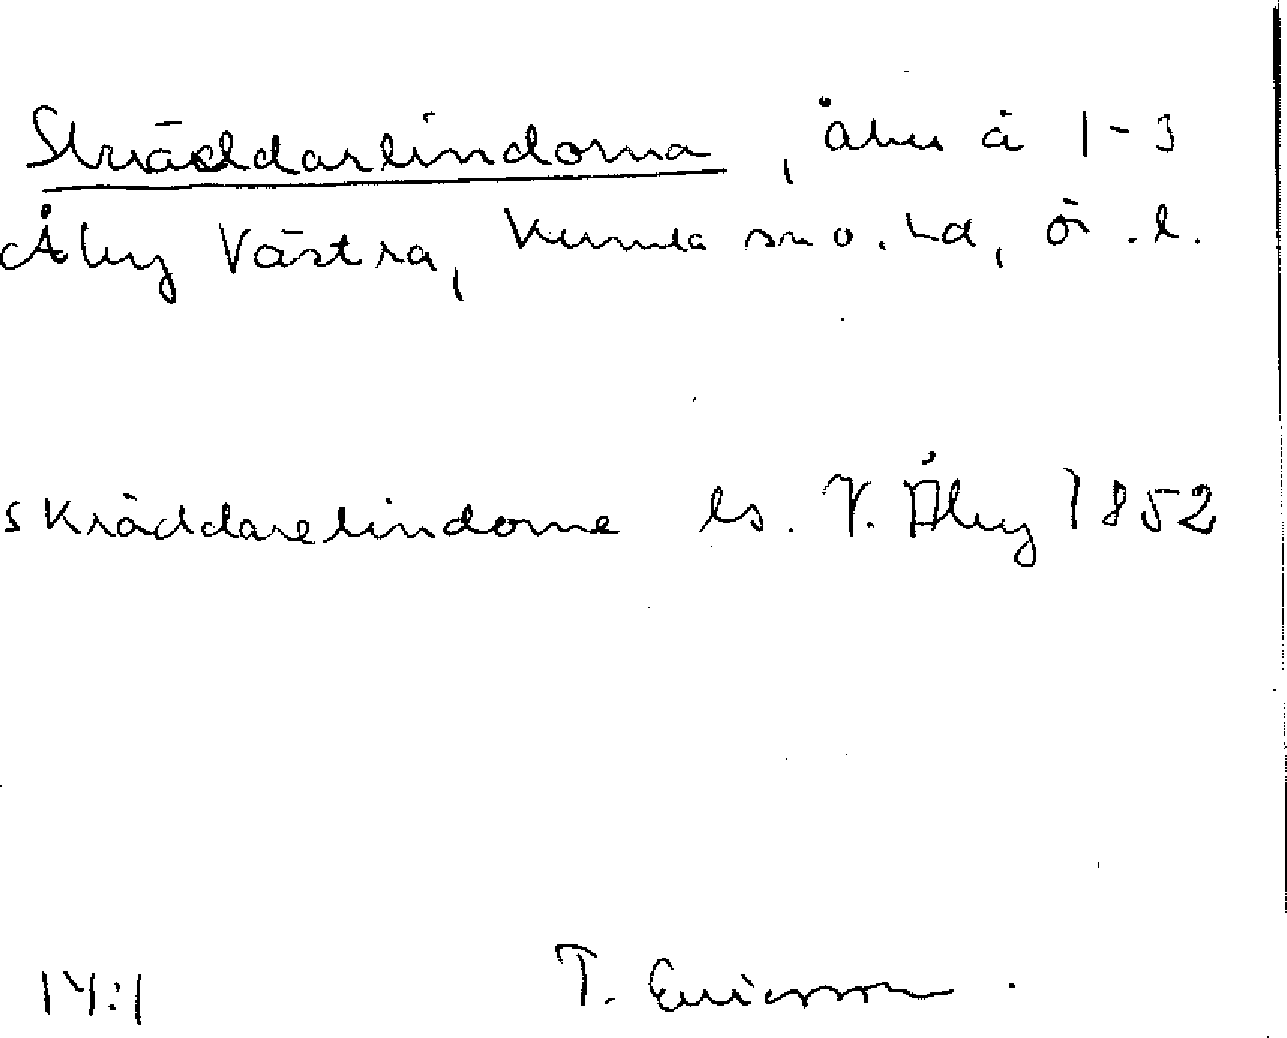 Skräddarlindorna, åker å 1-3
Åby Västra, Kumla sn o. hd, Ör. l.
skräddarelindorne ls. V. Åby 1852
14:1 T. Ericsson.